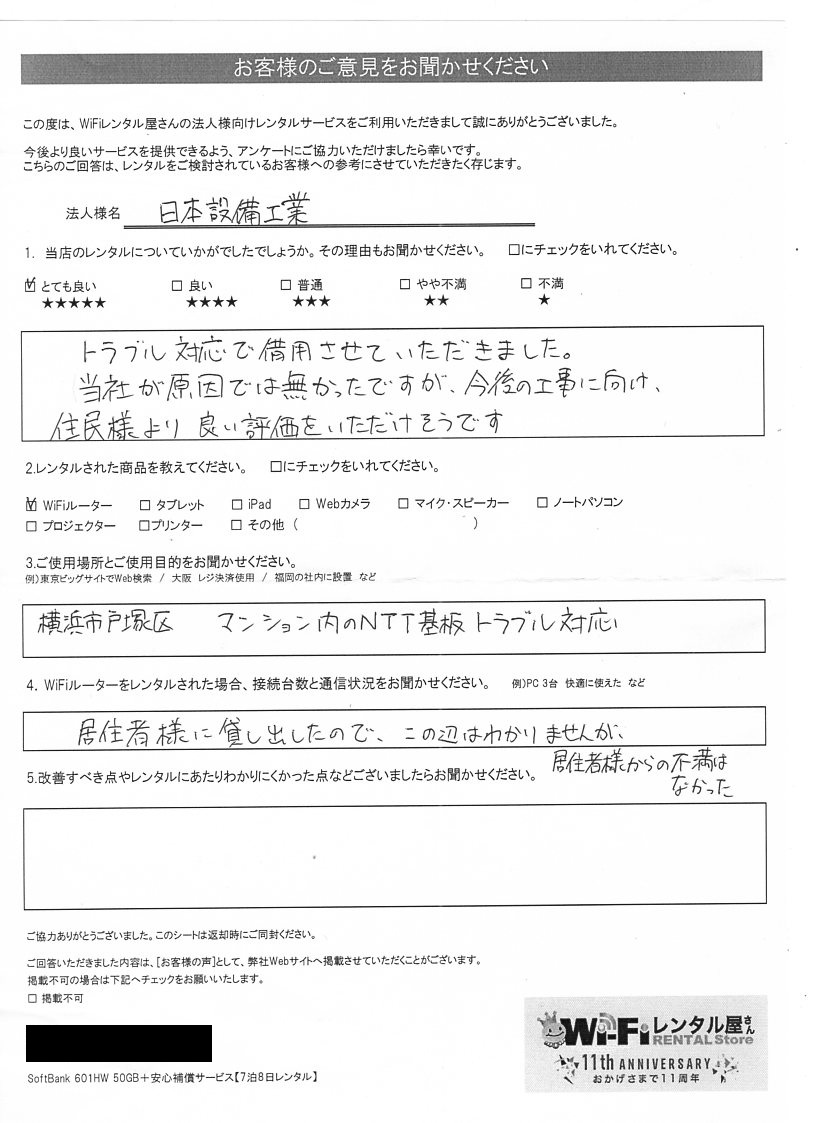 お客様のご意見をお聞かせください
この度は、WiFiレンタル屋さんの法人様向けレンタルサービスをご利用いただきまして誠にありがとうございました。
今後より良いサービスを提供できるよう、アンケートにご協力いただけましたら幸いです。
こちらのご回答は、レンタルをご検討されているお客様への参考にさせていただきたく存じます。
法人様名 日本設備工業
1. 当店のレンタルについていかがでしたでしょうか。その理由もお聞かせください。 □にチェックをいれてください。
☑ とても良い □ 良い □ 普通 □ やや不満 □ 不満
★★★★★ ★★★★ ★★★ ★★ ★
トラブル対応で借用させていただきました。
当社が原因では無かったですが、今後の工事に向け、
住民様より良い評価をいただけそうです
2.レンタルされた商品を教えてください。 □にチェックをいれてください。
☑ WiFiルーター □ タブレット □ iPad □ Webカメラ □ マイク・スピーカー □ ノートパソコン
□ プロジェクター □プリンター □ その他 ( )
3.ご使用場所とご使用目的をお聞かせください。
例)東京ビッグサイトでWeb検索 / 大阪 レジ決済使用 / 福岡の社内に設置 など
横浜市戸塚区 マンション内のNTT基板トラブル対応
4. WiFiルーターをレンタルされた場合、接続台数と通信状況をお聞かせください。 例)PC 3台 快適に使えた など
居住者様に貸し出したので、この辺はわかりませんが、
居住者様からの不満は
なかった
5.改善すべき点やレンタルにあたりわかりにくかった点などございましたらお聞かせください。
ご協力ありがとうございました。このシートは返却時にご同封ください。
ご回答いただきました内容は、[お客様の声]として、弊社Webサイトへ掲載させていただくことがございます。
掲載不可の場合は下記へチェックをお願いいたします。
□ 掲載不可
SoftBank 601HW 50GB+安心補償サービス【7泊8日レンタル】
Wi-Fiレンタル屋さん
RENTAL Store
11th ANNIVERSARY
おかげさまで11周年